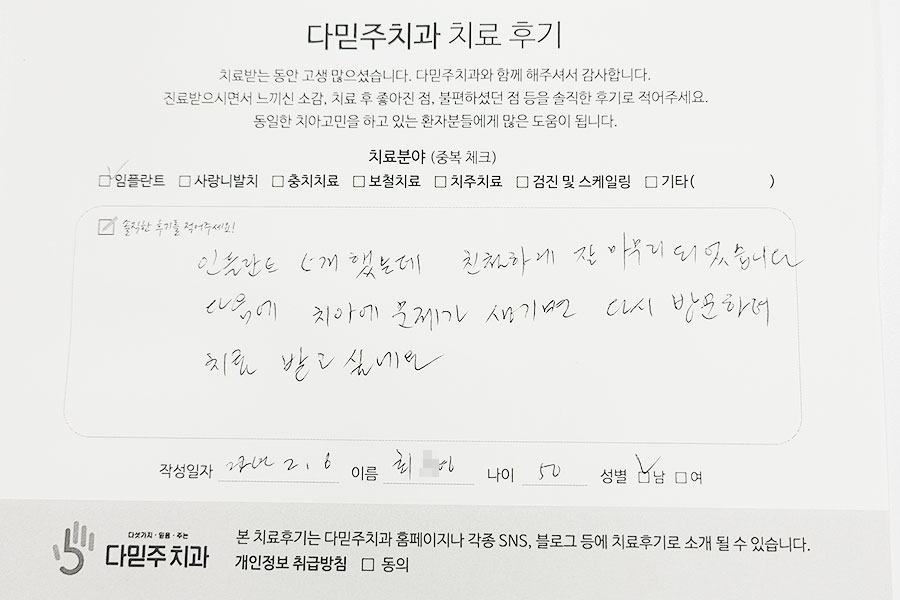 다믿주치과 치료 후기
치료받는 동안 고생 많으셨습니다. 다믿주치과와 함께 해주셔서 감사합니다.
진료받으시면서 느끼신 소감, 치료 후 좋아진 점, 불편하셨던 점 등을 솔직한 후기로 적어주세요.
동일한 치아고민을 하고 있는 환자분들에게 많은 도움이 됩니다.
치료분야 (중복 체크)
☑ 임플란트 □ 사랑니발치 □ 충치치료 □ 보철치료 □ 치주치료 □ 검진 및 스케일링 □ 기타( )
솔직한 후기를 적어주세요!
인플란트 5개 했는데 친절하게 잘 마무리 되었습니다
다음에 치아에 문제가 생기면 다시 방문하여
치료 받고 싶네요
작성일자 2.6 이름 최 영 나이 50 성별 ☑남 □여
다섯가지·믿음·주는
다믿주치과
본 치료후기는 다믿주치과 홈페이지나 각종 SNS, 블로그 등에 치료후기로 소개 될 수 있습니다.
개인정보 취급방침 □ 동의